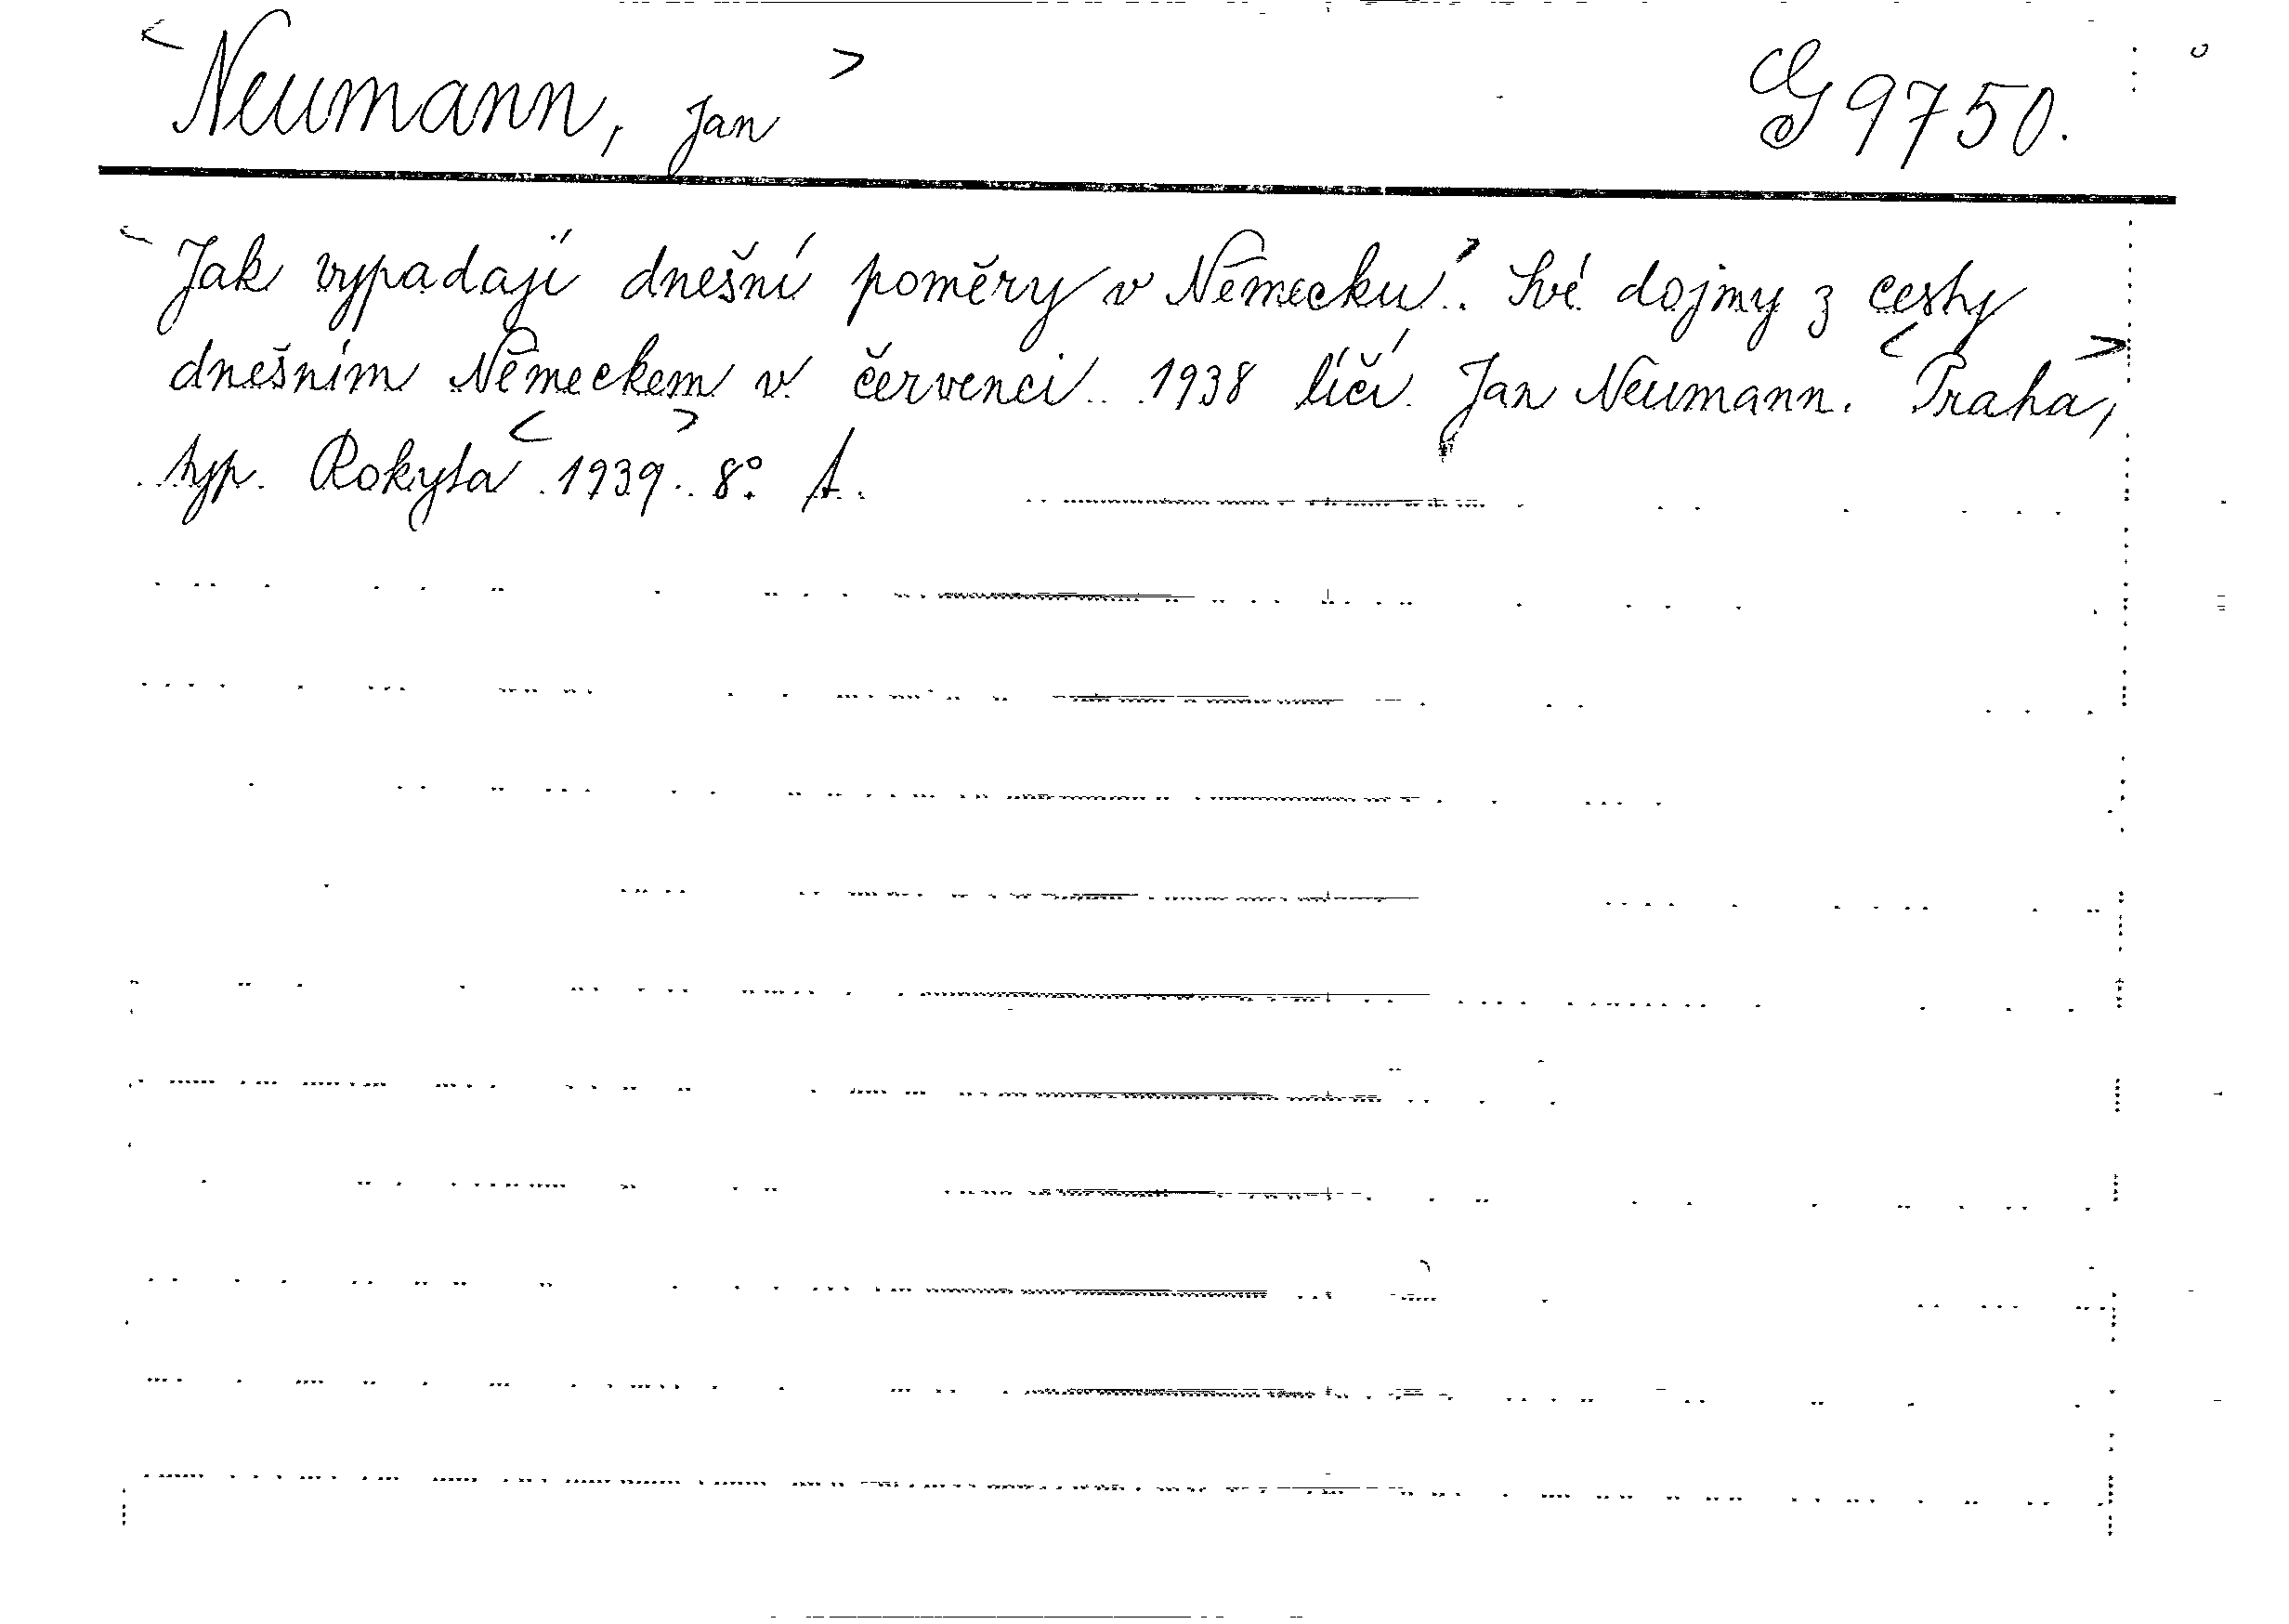 <Neumann, Jan> G 9750.
<Jak vypadají dnešní poměry v Německu>. Své dojmy z cesty
dnešním Německem v červenci 1938 líčí Jan Neumann. <Praha>,
typ. Rokyta <1939>. 8°. A.